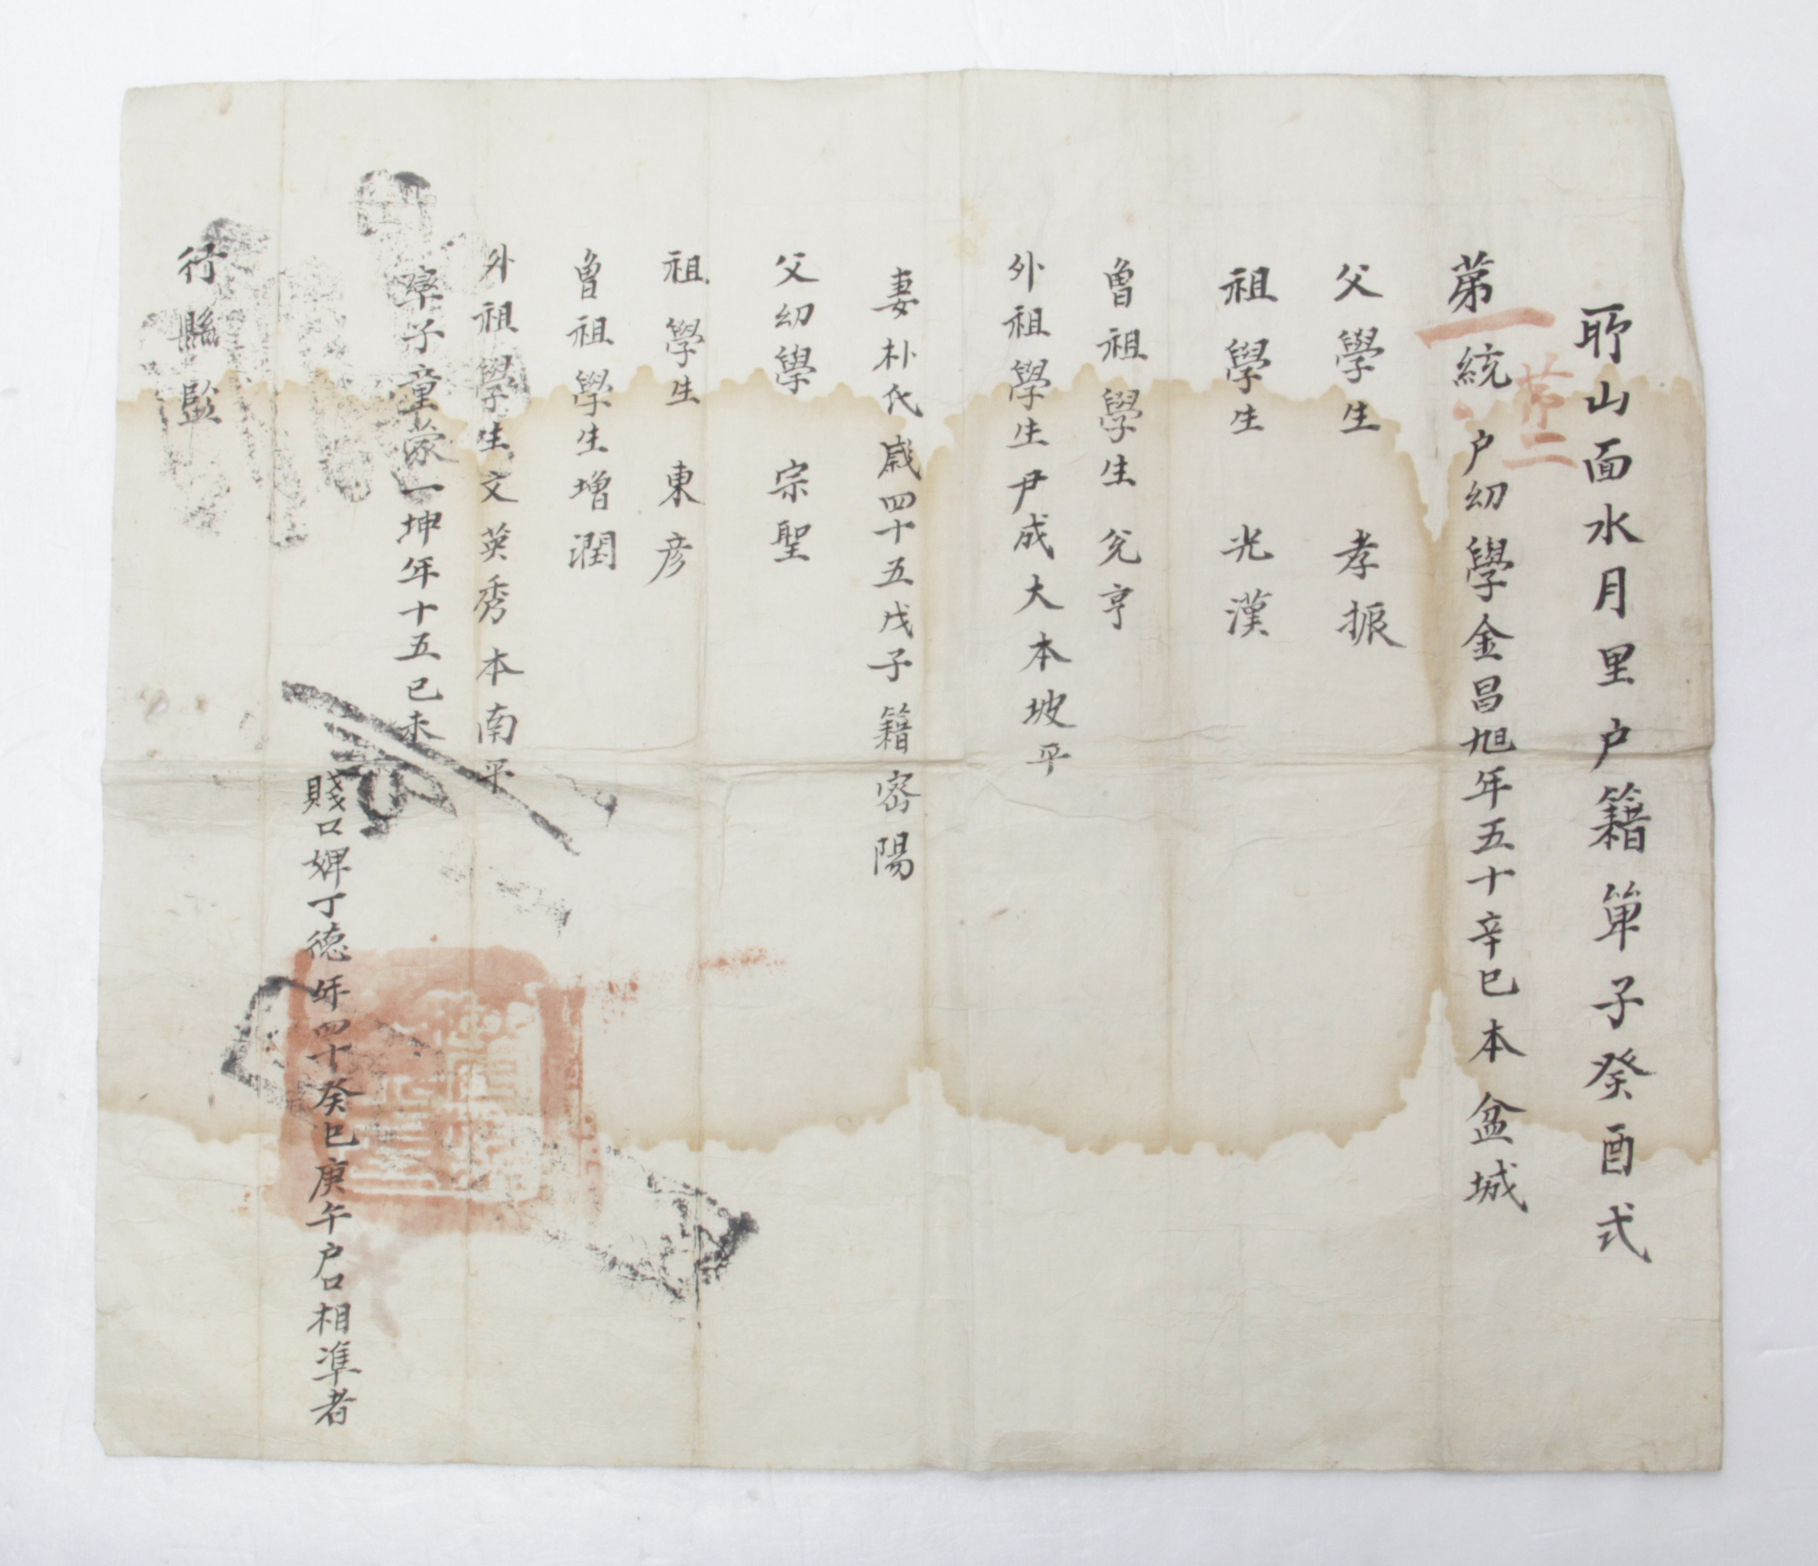 耶山面水月里户籍单子癸酉式
第一統 第二 户幼學金昌旭年五十辛巳本盆城
父學生 孝振
祖學生 光漢
曾祖學生 兊亨
外祖學生尹成大本坡平
妻朴氏歲四十五戊子籍密陽
父幼學 宗聖
祖學生 東彦
曾祖學生增潤
外祖學生文英秀本南平
率子童蒙一坤年十五己未
賤口婢丁德年四十癸巳庚午户口相準者
行縣監